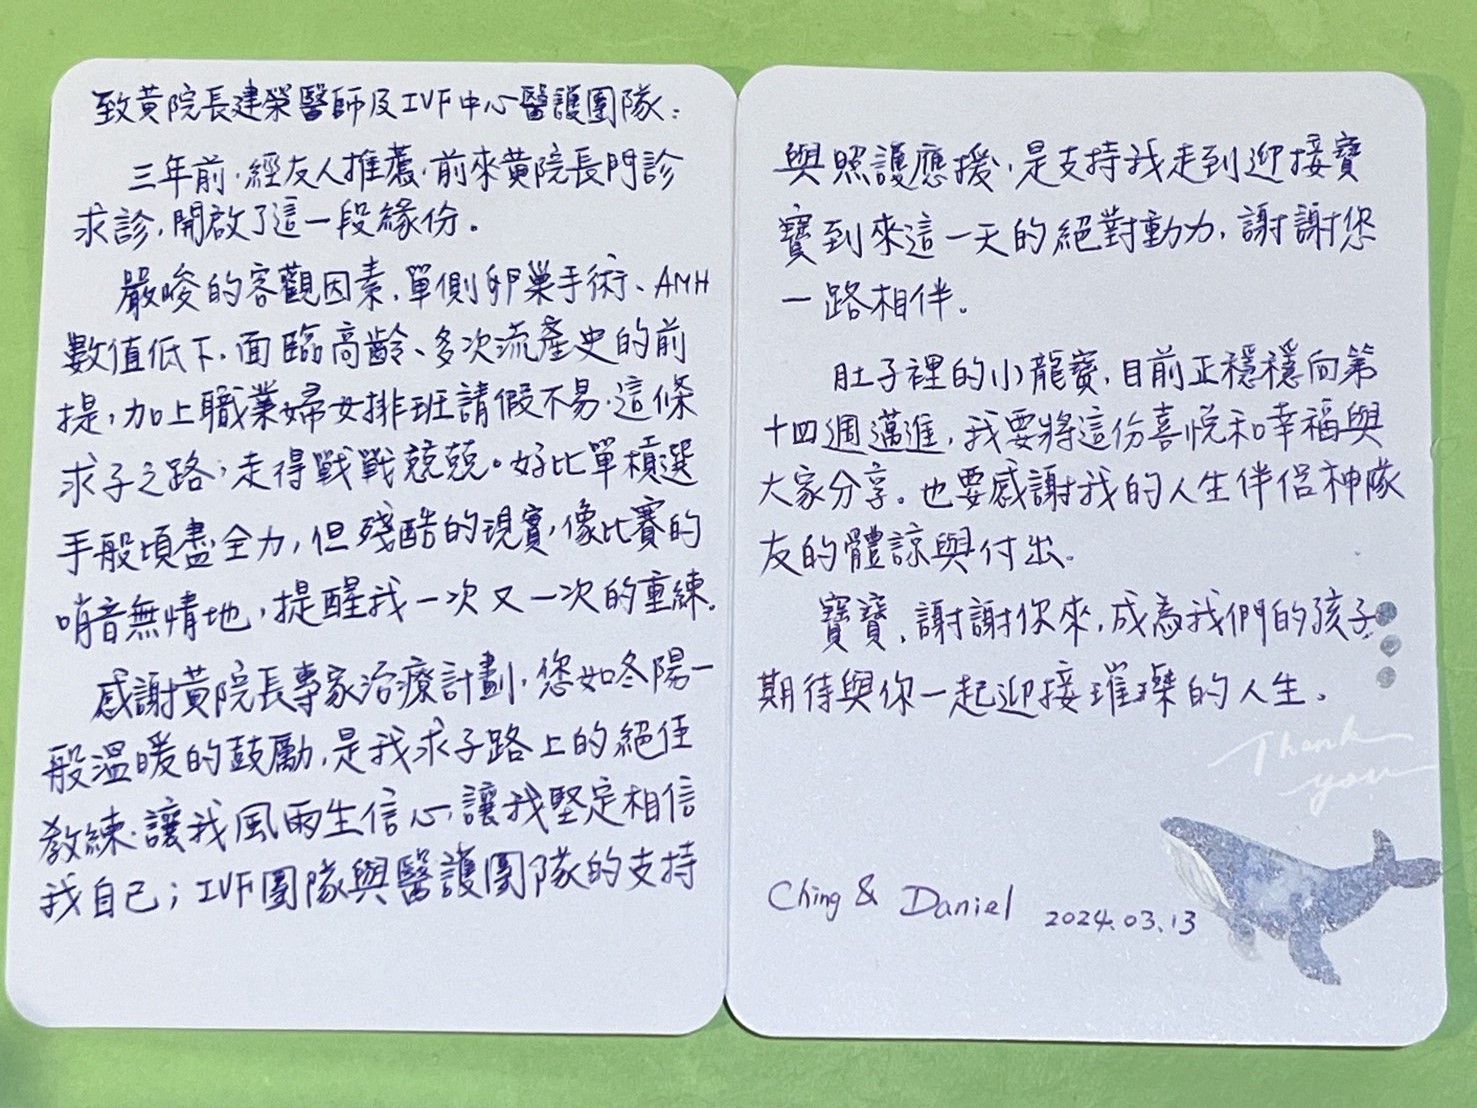 致黃院長建榮醫師及IVF中心醫護團隊：
三年前，經友人推薦，前來黃院長門診
求診，開啟了這一段緣份。
嚴峻的客觀因素，單側卵巢手術、AMH
數值低下，面臨高齡、多次流產史的前
提，加上職業婦女排班請假不易，這條
求子之路，走得戰戰兢兢。好比單槓選
手般頃盡全力，但殘酷的現實，像比賽的
哨音無情地，提醒我一次又一次的重練。
感謝黃院長專家治療計劃，您如冬陽一
般溫暖的鼓勵，是我求子路上的絕佳
教練，讓我風雨生信心，讓我堅定相信
我自己；IVF團隊與醫護團隊的支持
與照護應援，是支持我走到迎接寶
寶到來這一天的絕對動力，謝謝您
一路相伴。
肚子裡的小龍寶，目前正穩穩向第
十四週邁進，我要將這份喜悅和幸福與
大家分享。也要感謝我的人生伴侶神隊
友的體諒與付出。
寶寶，謝謝你來，成為我們的孩子
期待與你一起迎接璀璨的人生。
Thank
you
Ching & Daniel 2024.03.13